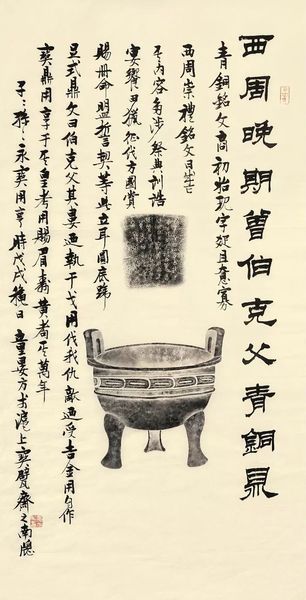 西周晚期曾伯克父青銅鼎
青銅銘文商初始現字短且意寡
西周崇禮銘文日
其內容多涉祭典訓誥
宴饗田獵征代方國賞
賜冊命盟誓契等此立耳圓底蹄
足式鼎文曰伯克父甘婁迺執干戈用伐我仇敵迺受吉金用自作
寶鼎用享于其皇考用賜眉壽黃耇其萬年
子子孫孫永寶用享時戊戌穐日童晏方於滬上寶甓齋之南牕